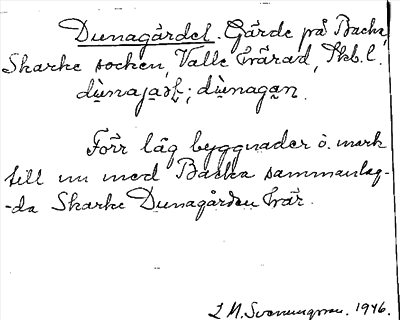 Dunagärdet. Gärde på Backa,
Skarke socken, Valle härad, Skb.l.
dùnajaḍɛt; dùnagaṇ.
Förr låg byggnader o. mark
till nu med Backa sammanlag-
-da Skarke Dunagården här.
L M. Svenungsson. 1946.